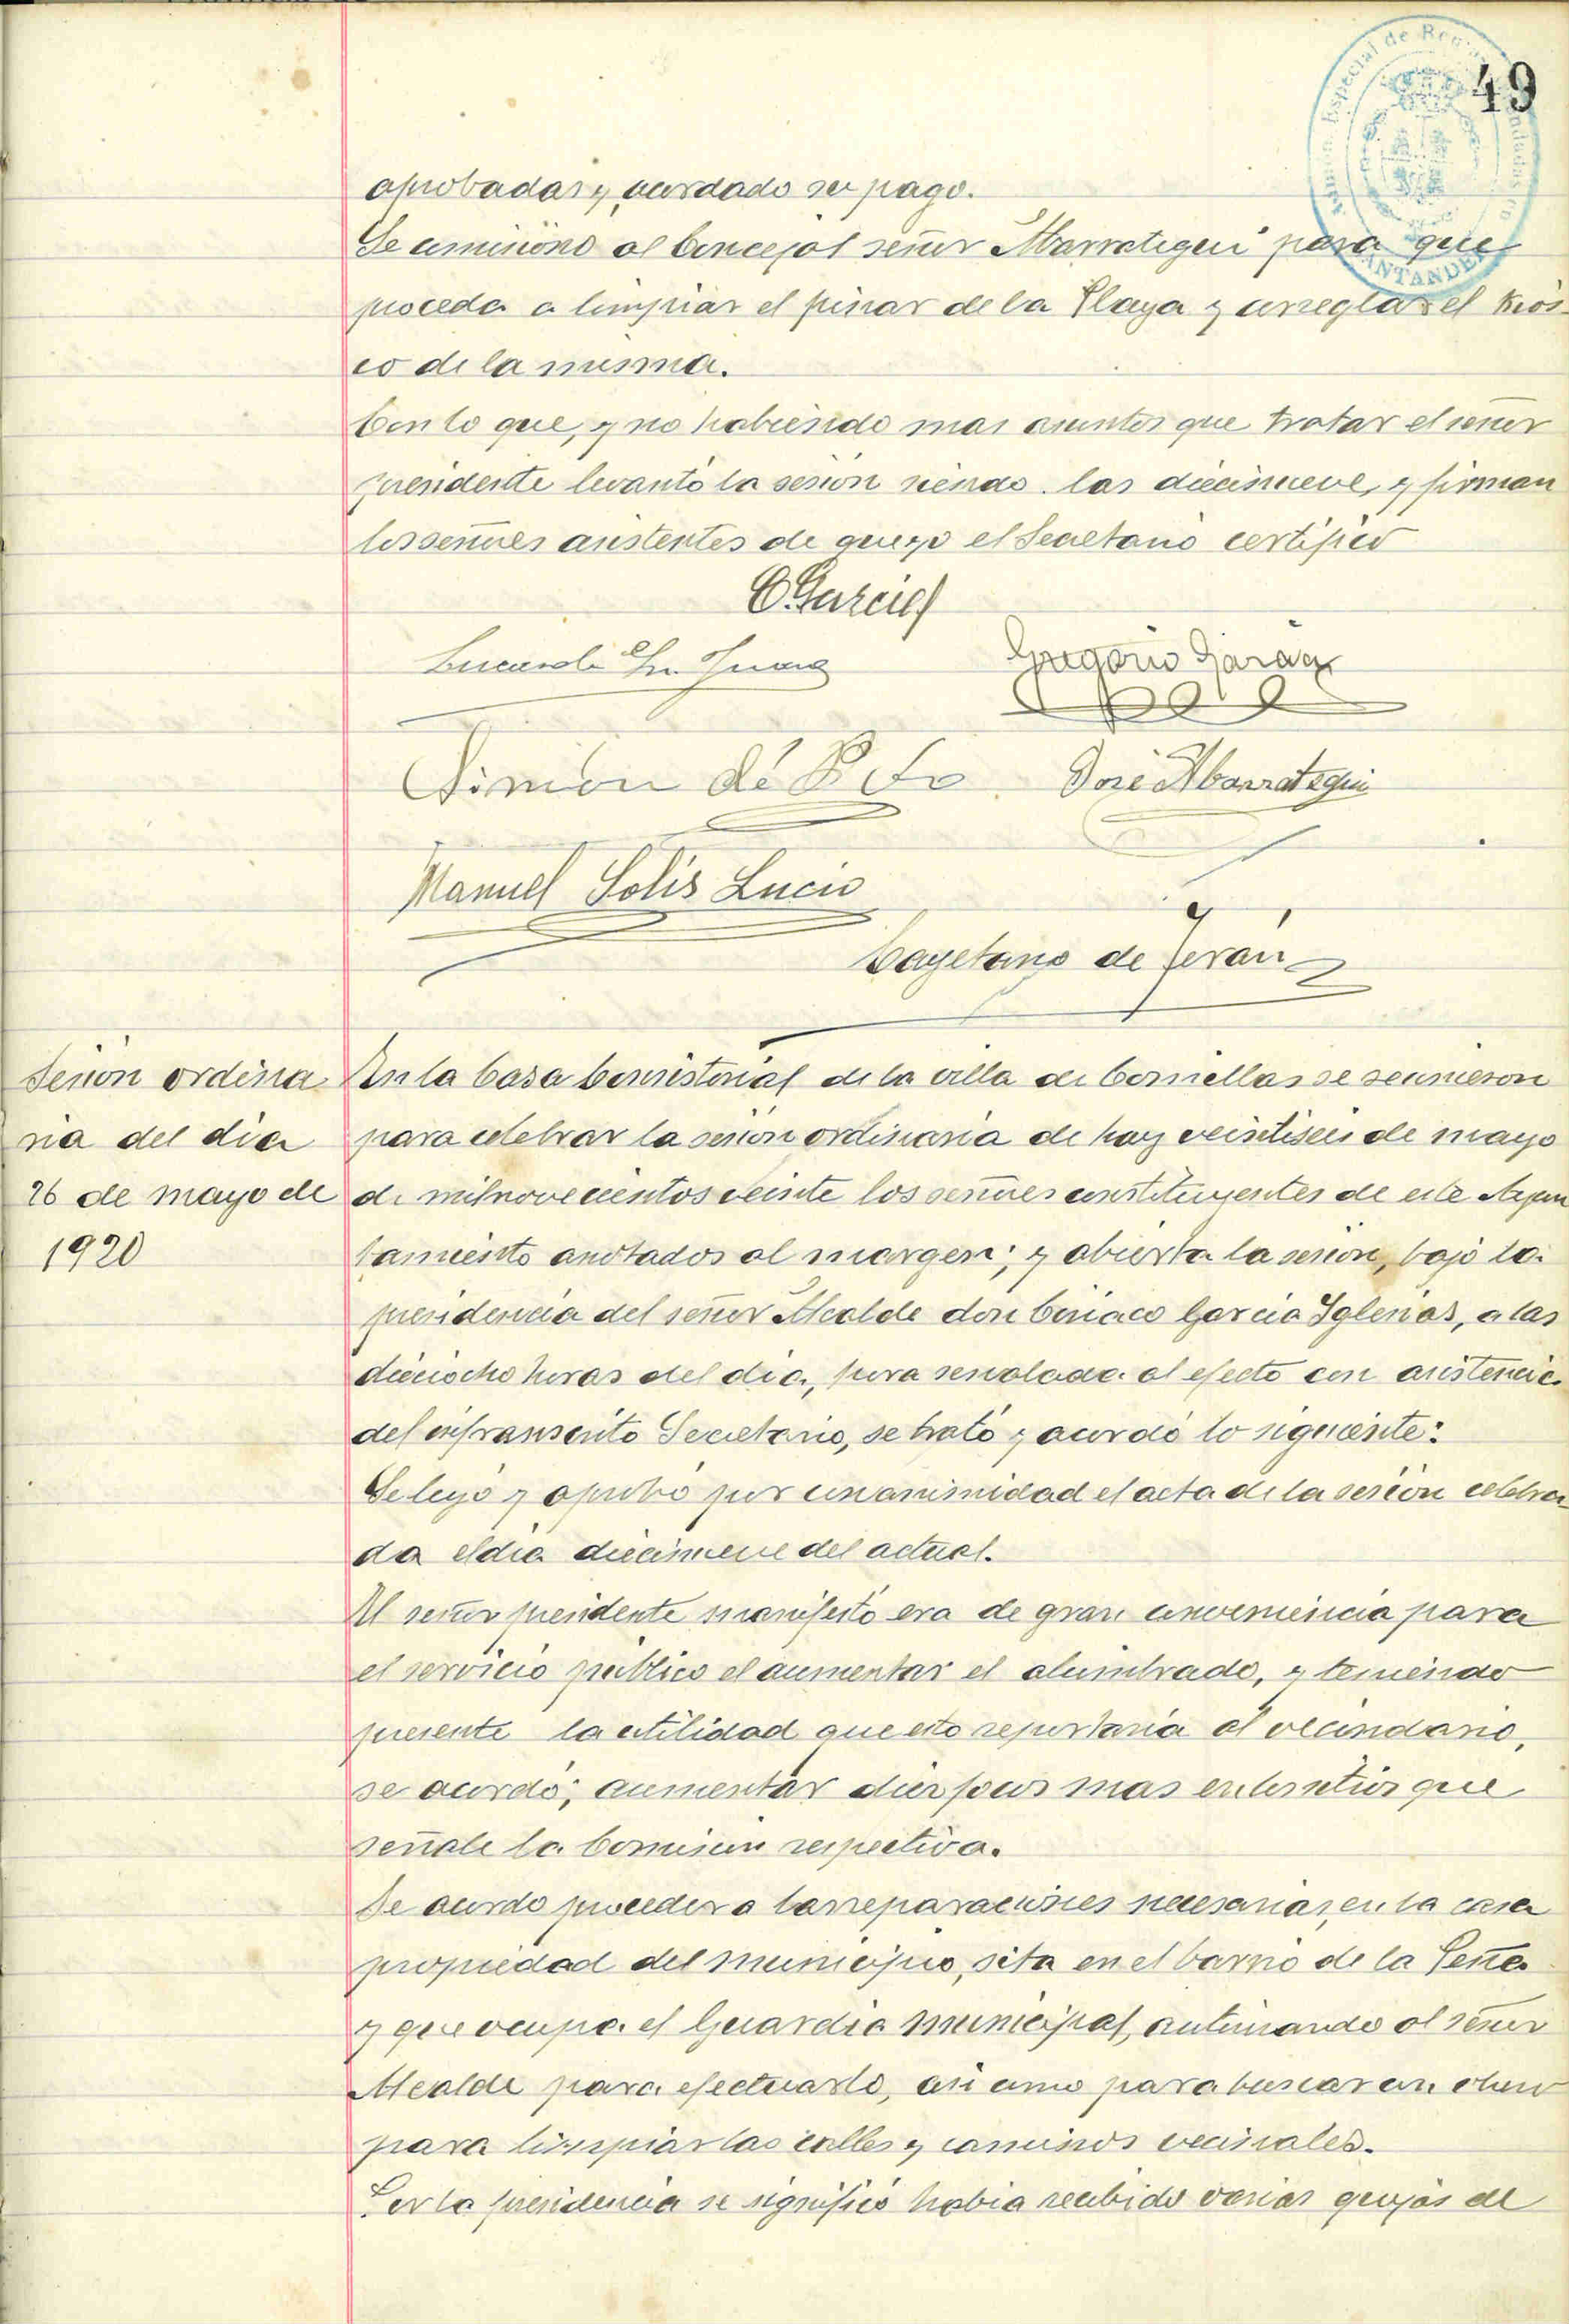 49
aprobadas y acordado su pago.
Se comisionó al Concejal señor Marrategui para que
proceda a limpiar el pinar de la Playa y arreglar el kios-
co de la misma.
Con lo que, y no habiendo mas asuntos que tratar el señor
presidente levantó la sesion siendo las diecinueve, y firman
los señores asistentes de que yo el Secretario certifico
C. Garcia
Gregorio Garay
Simón de
José Marrategui
Manuel Solis Lucio
Cayetano de Terán
Sesion ordina
ria del dia
26 de mayo de
1920
En la Casa Consistorial de la villa de Comillas se reunieron
para celebrar la sesion ordinaria de hoy veintiseis de mayo
de mil novecientos veinte los señores constituyentes de este Ayun
tamiento anotados al margen; y abierta la sesion, bajo la
presidencia del señor Alcalde don Ciriaco Garcia Iglesias, a las
dieciocho horas del dia, hora señalada al efecto con asistencia
del infrascrito Secretario, se trató y acordó lo siguiente:
Se leyó y aprobó por unanimidad el acta de la sesión celebra
da el dia diecinueve del actual.
El señor presidente manifestó era de gran conveniencia para
el servicio publico el aumentar el alumbrado, y teniendo
presente la utilidad que esto reportaria al vecindario,
se acordó; aumentar diez focos mas en los sitios que
señale la Comision respectiva.
Se acordo proceder a las reparaciones necesarias, en la casa
propiedad del municipio, sita en el barrio de la Peña
y que ocupa el Guardia municipal, autorizando al señor
Alcalde para efectuarlo, asi como para buscar un obrero
para limpiar las calles y caminos vecinales.
Por la presidencia se significó habia recibido varias quejas de